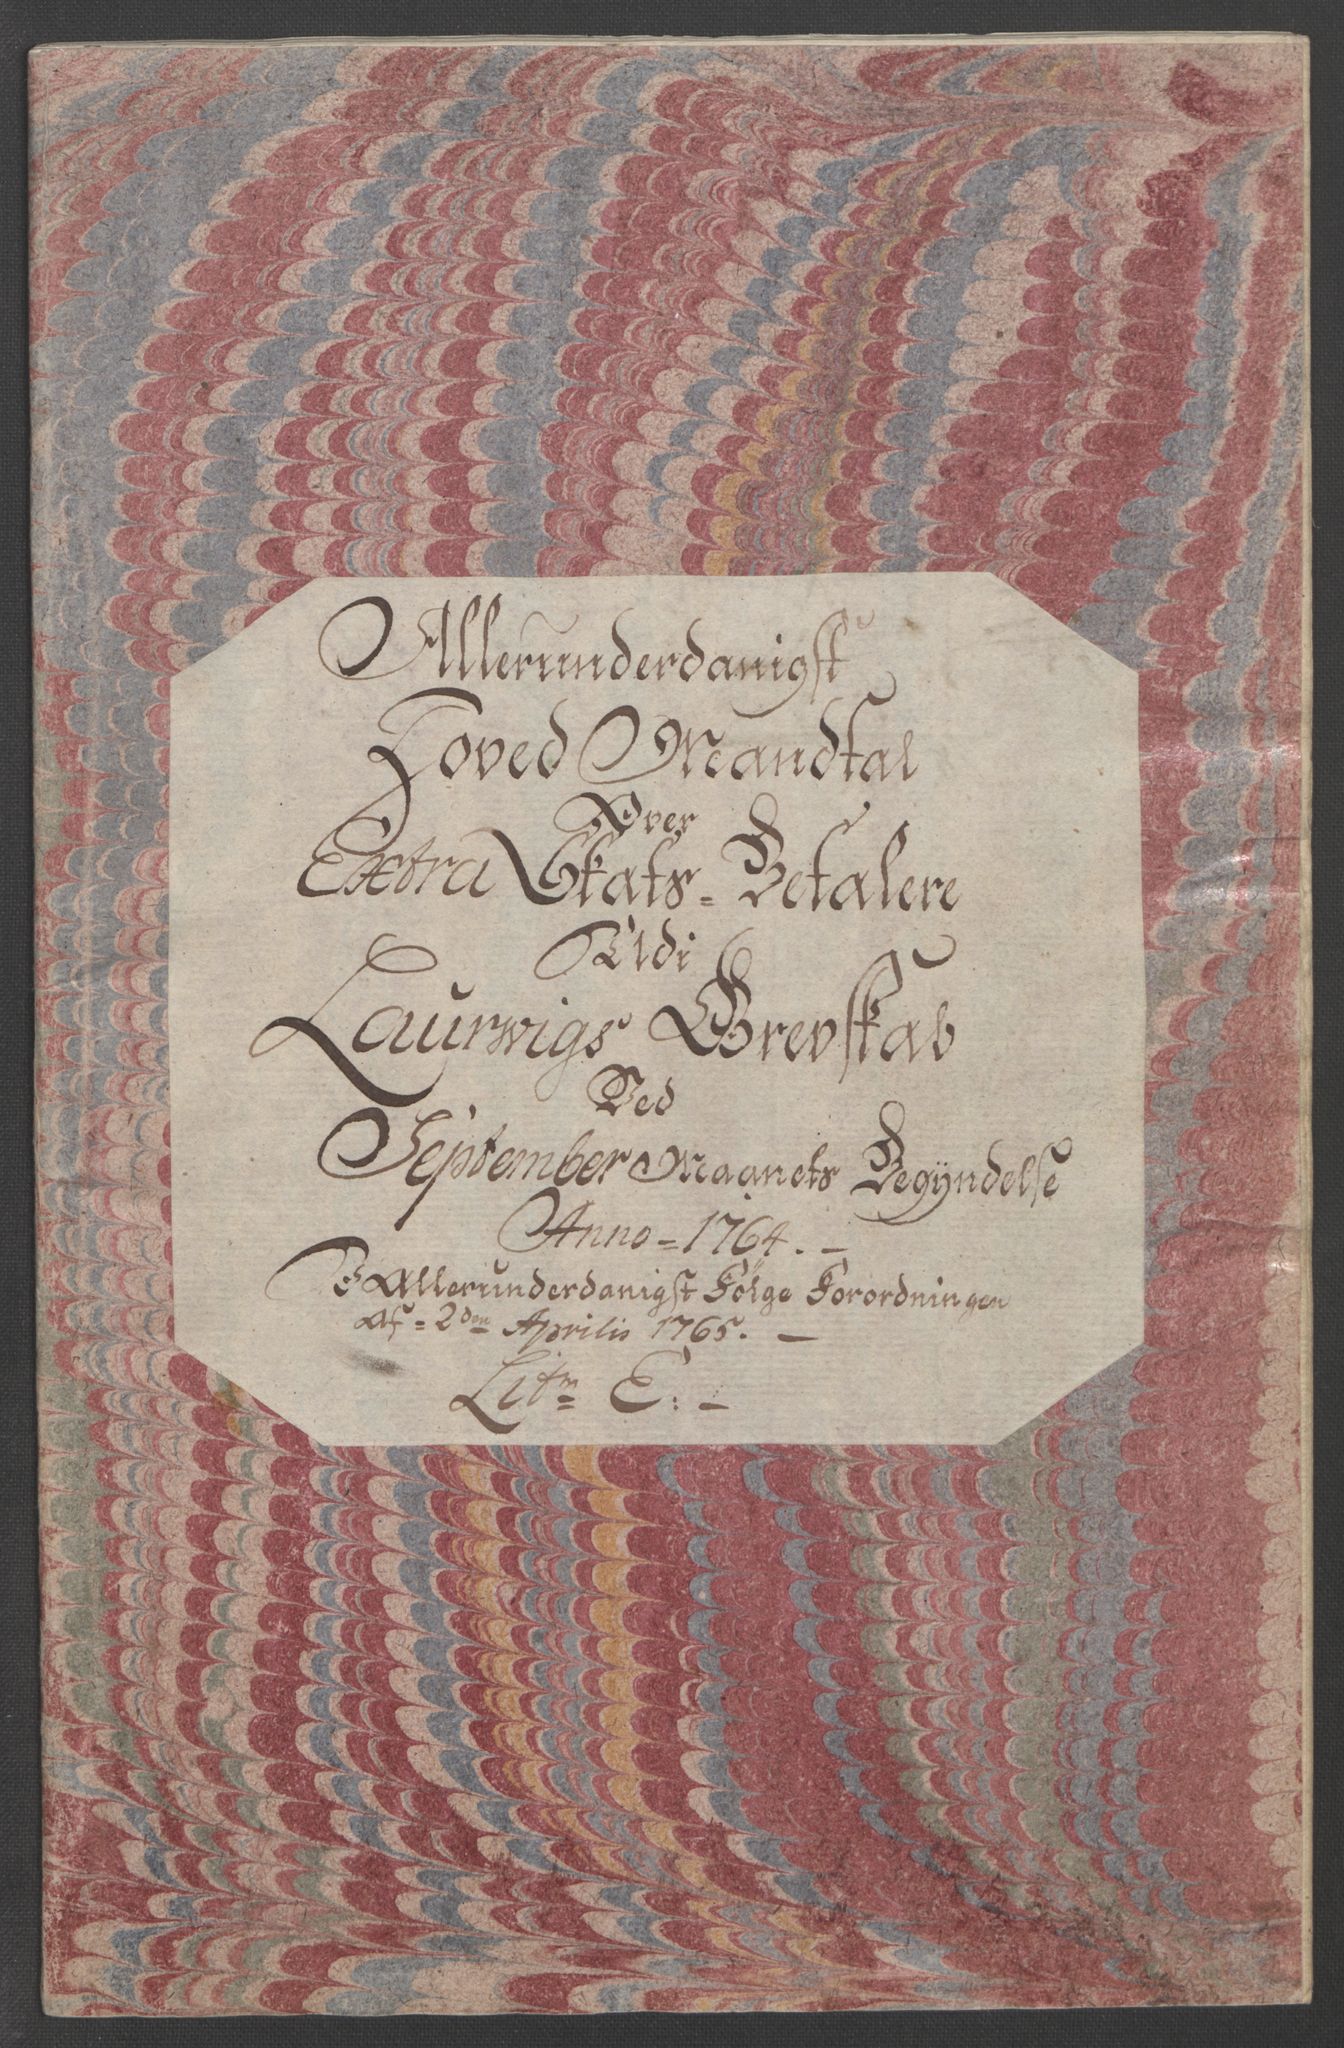 Allerunderdanigst
Hoved Mandtal
Over
Extra Skats = Betalere
Udi
Laurwigs Grevskab
Ved
September Maanets Begÿndelse
Anno = 1764. —
I Allerunderdanigst Følge Forordningen
Af = 2den Aprilis 1765. —
Litr E: —